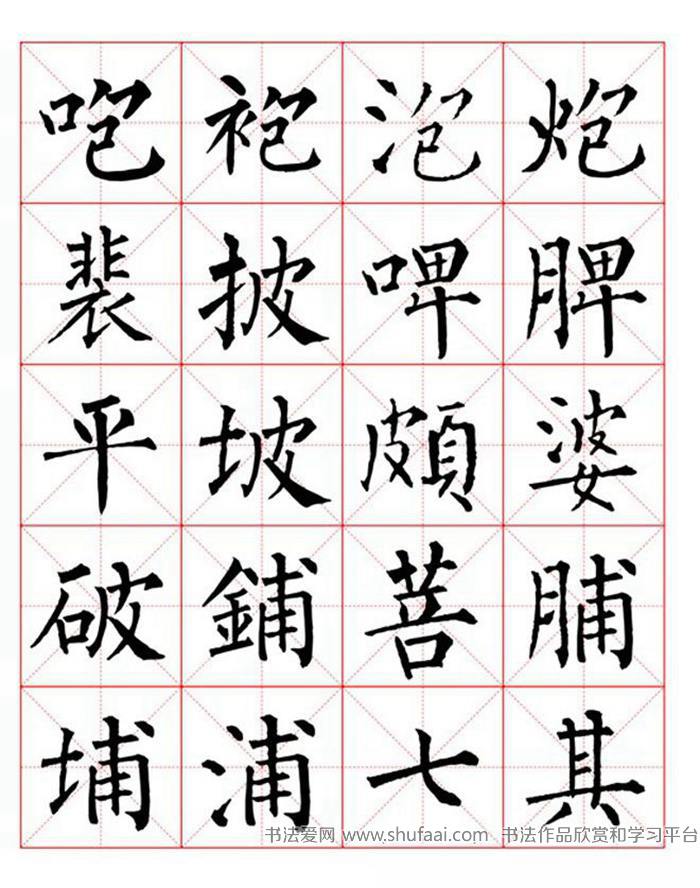 咆袍泡炮
裴披啤脾
平坡頗婆
破鋪菩脯
埔浦七其
书法爱网 www.shufaai.com 书法作品欣赏和学习平台